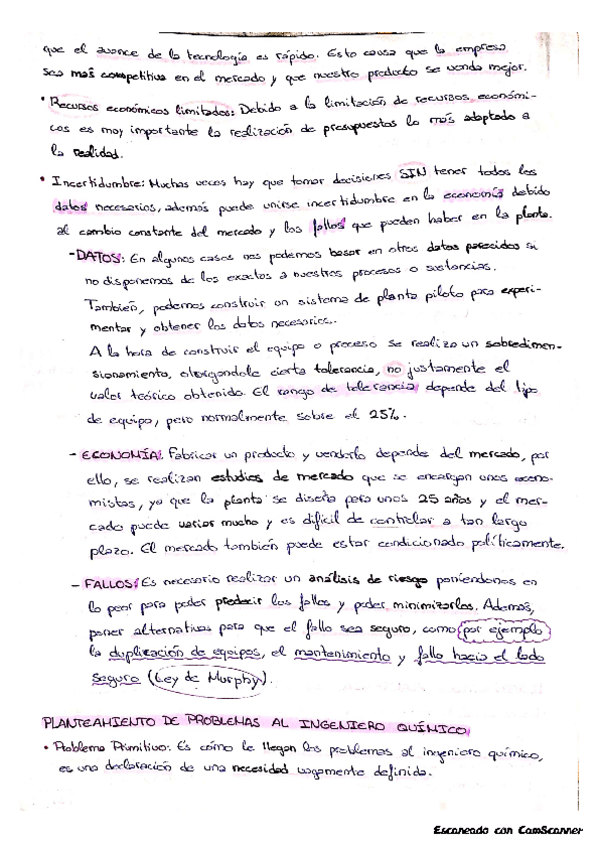 que el avance de la tecnología es rápido. Esto causa que la empresa
sea más competitiva en el mercado y que nuestro producto se venda mejor.
• Recursos económicos limitados: Debido a la limitación de recursos económi-
cos es muy importante la realización de presupuestos lo más adaptado a
la realidad.
• Incertidumbre: Muchas veces hay que tomar decisiones SIN tener todos los
datos necesarios, además puede unirse incertidumbre en la economía debido
al cambio constante del mercado y los fallos que pueden haber en la planta.
- DATOS: En algunos casos nos podemos basar en otros datos parecidos si
no disponemos de los exactos a nuestros procesos o sustancias.
También, podemos construir un sistema de planta piloto para experi-
mentar y obtener los datos necesarios.
A la hora de construir el equipo o proceso se realiza un sobredimen-
sionamiento, otorgandole cierta tolerancia, no justamente el
valor teórico obtenido. El rango de tolerancia depende del tipo
de equipo, pero normalmente sobre el 25%.
- ECONOMÍA: Fabricar un producto y venderlo depende del mercado, por
ello, se realizan estudios de mercado que se encargan unos econo-
mistas, ya que la planta se diseña para unos 25 años y el mer-
cado puede variar mucho y es difícil de controlar a tan largo
plazo. El mercado también puede estar condicionado políticamente.
- FALLOS: Es necesario realizar un análisis de riesgo poniendonos en
lo peor para poder predecir los fallos y poder minimizarlos. Además,
poner alternativas para que el fallo sea seguro, como por ejemplo
la duplicación de equipos, el mantenimiento y fallo hacia el lado
seguro (Ley de Murphy).
PLANTEAMIENTO DE PROBLEMAS AL INGENIERO QUÍMICO
• Problema Primitivo: Es cómo le llegan los problemas al ingeniero químico,
es una declaración de una necesidad vagamente definida.
Escaneado con CamScanner